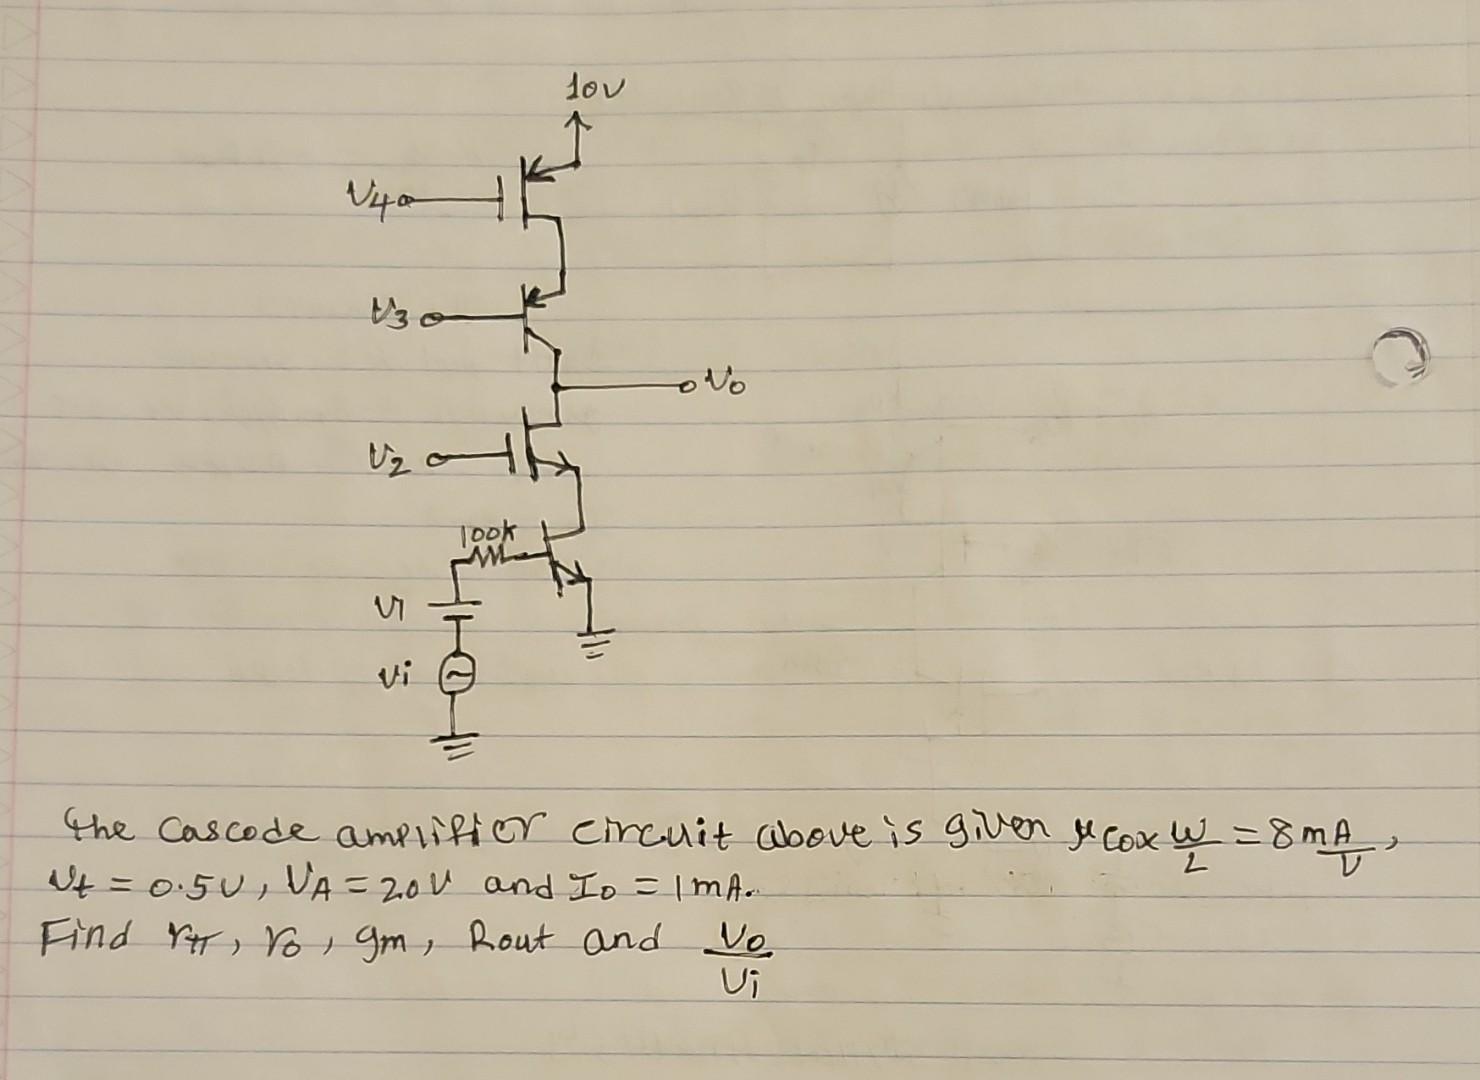 10V
V4
V3
Vo
V2
100K
V1
Vi
the cascode amplifier circuit above is given μCox W/L = 8 mA/V,
Vt = 0.5V, VA = 20V and ID = 1mA.
Find rπ, ro, gm, Rout and Vo/Vi